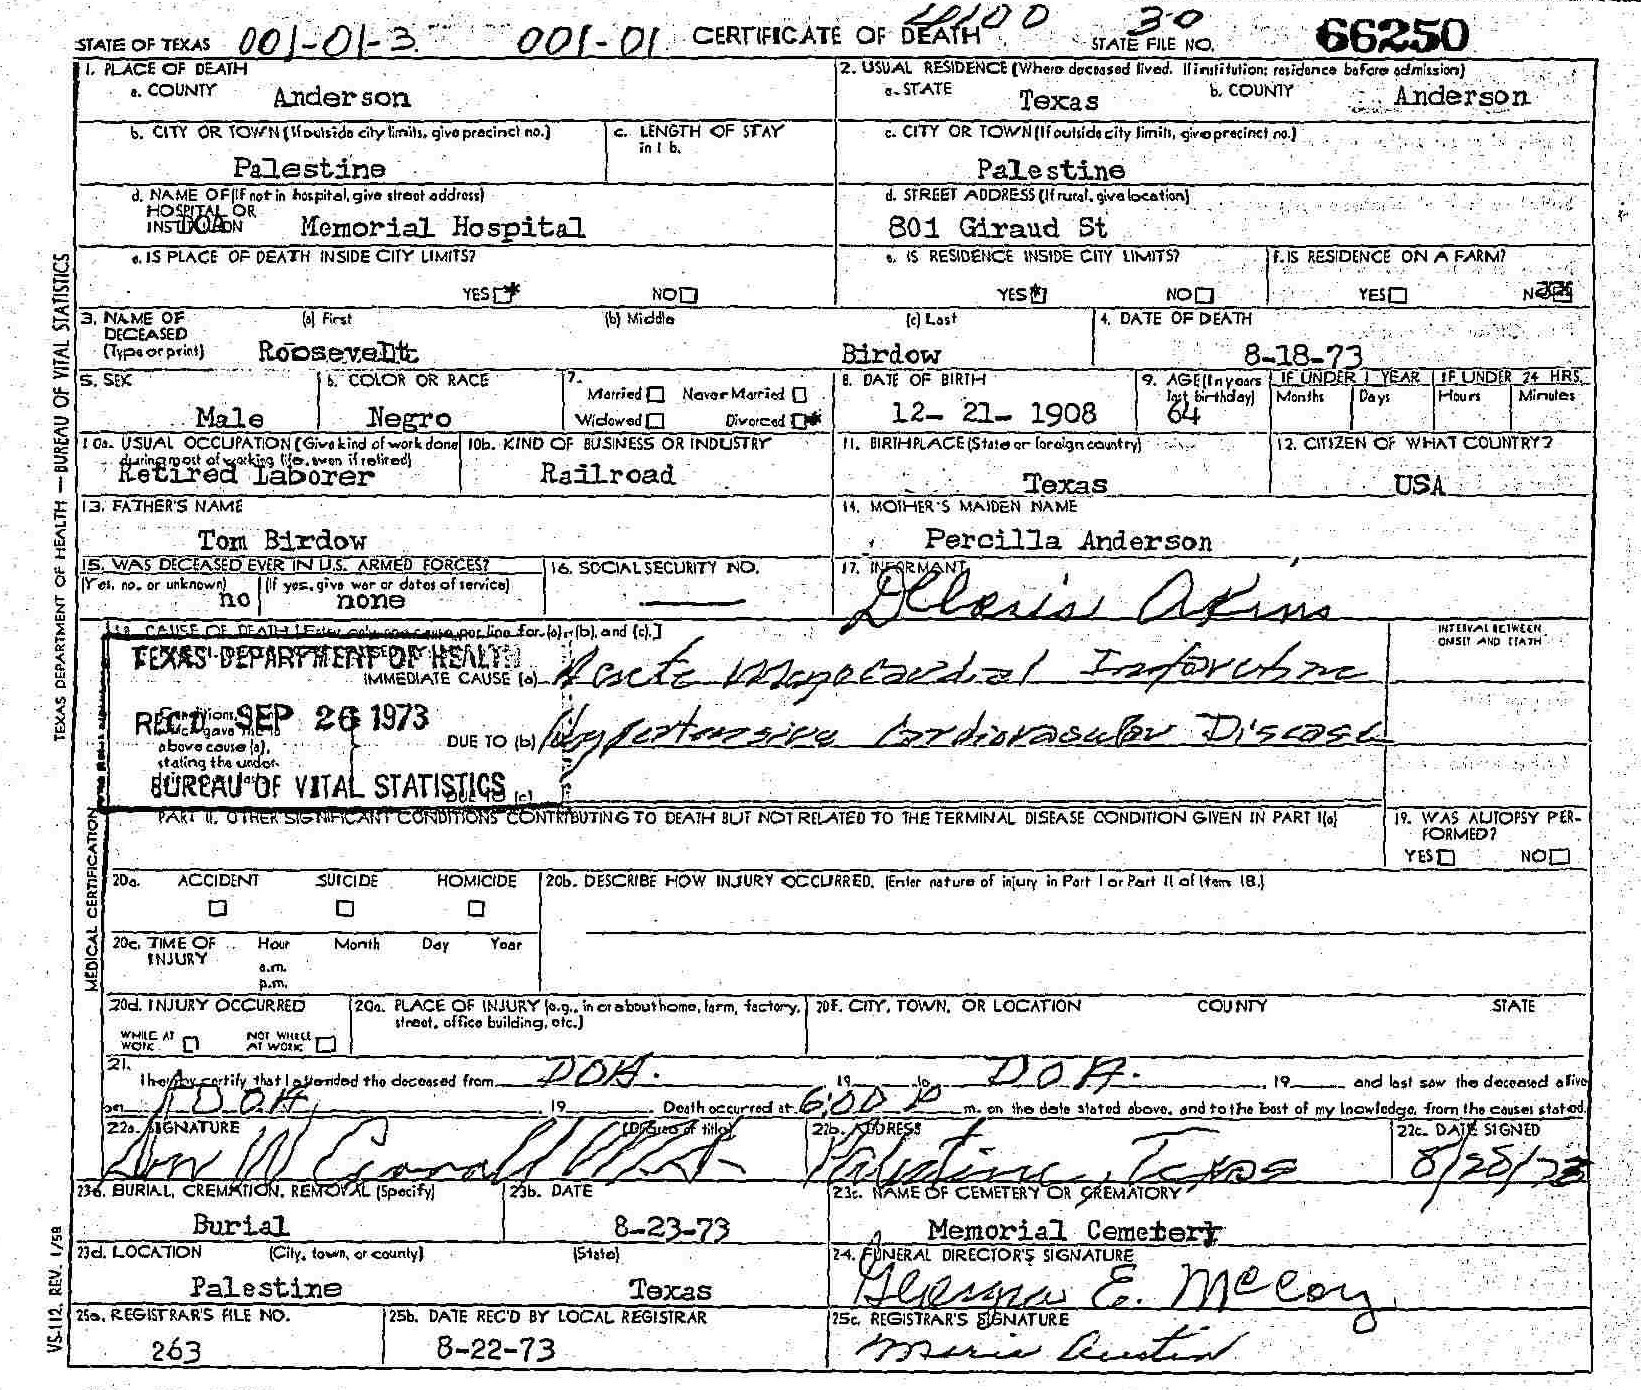 STATE OF TEXAS 001-01-3 001-01 CERTIFICATE OF DEATH 4100 30 STATE FILE NO. 66250
1. PLACE OF DEATH
a. COUNTY Anderson
2. USUAL RESIDENCE (Where deceased lived. If institution: residence before admission)
a. STATE Texas b. COUNTY Anderson
b. CITY OR TOWN (If outside city limits, give precinct no.) Palestine
c. LENGTH OF STAY in 1 b.
c. CITY OR TOWN (If outside city limits, give precinct no.) Palestine
d. NAME OF (If not in hospital, give street address) HOSPITAL OR DOA Memorial Hospital
d. STREET ADDRESS (If rural, give location) 801 Giraud St
e. IS PLACE OF DEATH INSIDE CITY LIMITS?
YES NO
e. IS RESIDENCE INSIDE CITY LIMITS?
YES NO
f. IS RESIDENCE ON A FARM?
YES NO
3. NAME OF DECEASED (Type or print) (a) First (b) Middle (c) Last
Roosevelt Birdow
4. DATE OF DEATH 8-18-73
5. SEX Male
6. COLOR OR RACE Negro
7. Married Never Married
Widowed Divorced
8. DATE OF BIRTH 12- 21- 1908
9. AGE (In years last birthday) 64
IF UNDER 1 YEAR Months Days
IF UNDER 24 HRS. Hours Minutes
10a. USUAL OCCUPATION (Give kind of work done during most of working life, even if retired) Retired Laborer
10b. KIND OF BUSINESS OR INDUSTRY Railroad
11. BIRTHPLACE (State or foreign country) Texas
12. CITIZEN OF WHAT COUNTRY? USA
13. FATHER'S NAME Tom Birdow
14. MOTHER'S MAIDEN NAME Percilla Anderson
15. WAS DECEASED EVER IN U.S. ARMED FORCES?
(Yes, no. or unknown) no (If yes, give war or dates of service) none
16. SOCIAL SECURITY NO.
17. INFORMANT Akins
18. CAUSE OF DEATH [Enter only one cause per line for (a), (b), and (c).]
INTERVAL BETWEEN ONSET AND DEATH
TEXAS DEPARTMENT OF HEALTH
IMMEDIATE CAUSE (a) Acute Myocardial Infarction
REC'D SEP 26 1973
above cause (a), stating the under-
DUE TO (b) Hypertensive Cardiovascular Disease
BUREAU OF VITAL STATISTICS (c)
PART II. OTHER SIGNIFICANT CONDITIONS CONTRIBUTING TO DEATH BUT NOT RELATED TO THE TERMINAL DISEASE CONDITION GIVEN IN PART I(a)
19. WAS AUTOPSY PERFORMED?
YES NO
20a. ACCIDENT SUICIDE HOMICIDE
20b. DESCRIBE HOW INJURY OCCURRED. (Enter nature of injury in Part I or Part II of Item 18.)
20c. TIME OF INJURY Hour Month Day Year
a.m.
p.m.
20d. INJURY OCCURRED
WHILE AT WORK NOT WHILE AT WORK
20e. PLACE OF INJURY (e.g., in or about home, farm, factory, street, office building, etc.)
20f. CITY, TOWN, OR LOCATION COUNTY STATE
21. I hereby certify that I attended the deceased from DOA. 19 to DOA. , 19 and last saw the deceased alive
on DOA , 19 . Death occurred at 6:00 P m. on the date stated above, and to the best of my knowledge, from the causes stated.
22a. SIGNATURE (Degree or title)
22b. ADDRESS Palestine, Texas
22c. DATE SIGNED 8/20/73
23a. BURIAL, CREMATION, REMOVAL (Specify) Burial
23b. DATE 8-23-73
23c. NAME OF CEMETERY OR CREMATORY Memorial Cemetery
23d. LOCATION (City, town, or county) (State)
Palestine Texas
24. FUNERAL DIRECTOR'S SIGNATURE E. McCoy
25a. REGISTRAR'S FILE NO. 263
25b. DATE REC'D BY LOCAL REGISTRAR 8-22-73
25c. REGISTRAR'S SIGNATURE Marie Austin
TEXAS DEPARTMENT OF HEALTH — BUREAU OF VITAL STATISTICS
MEDICAL CERTIFICATION
VS-112 REV. 1/58